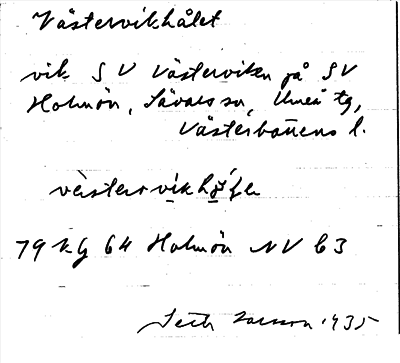 Västervikhålet
vik SV Västerviken på SV
Holmön, Sävars sn, Umeå tg,
Västerbottens l.
västervikhå̀le
79 kg 64 Holmön NV 63
Seth Larsson 1935